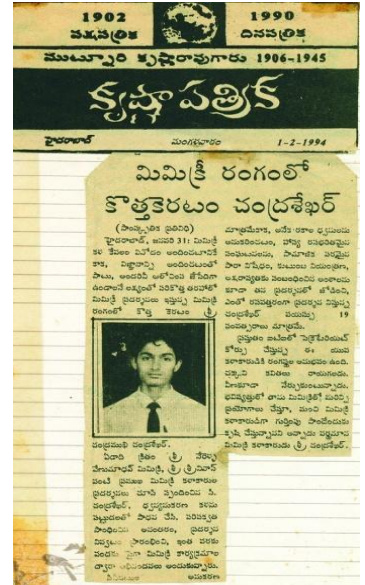 1902
పక్షపత్రిక
1990
దినపత్రిక
ముట్నూరి కృష్ణారావుగారు 1906-1945
కృష్ణాపత్రిక
హైదరాబాద్ మంగళవారం 1-2-1994
మిమిక్రీ రంగంలో
కొత్తకెరటం చంద్రశేఖర్
(సాంస్కృతిక ప్రతినిధి)
హైదరాబాద్, జనవరి 31: మిమిక్రీ
కళ కేవలం వినోదం అందించటానికే
కాక, విజ్ఞానాన్ని అందించటంతో
పాటు, అందరినీ ఆలోచింప జేసేదిగా
ఉండాలనే లక్ష్యంతో సరికొత్త తరహాలో
మిమిక్రీ ప్రదర్శనలు ఇస్తున్న మిమిక్రీ
రంగంలో కొత్త కెరటం శ్రీ
చంద్రముఖి చంద్రశేఖర్.
ఏడాది క్రితం శ్రీ నేరెళ్ళ
వేణుమాధవ్ మిమిక్రీ, శ్రీ శ్రీనివాస్
వంటి ప్రముఖ మిమిక్రీ కళాకారుల
ప్రదర్శనలు చూసి స్పందించిన సి.
చంద్రశేఖర్, ధ్వన్యనుకరణ కళను
పట్టుదలతో సాధన చేసి, పరిపక్వత
సాధించిన అనంతరం, ప్రదర్శన
నివ్వటం ప్రారంభించి, ఇంత వరకు
వందకు పైగా మిమిక్రీ కార్యక్రమాల
ద్వారా అభినందనలు అందుకున్నారు.
అనుకరణ
మాత్రమేకాక, అనేక రకాల ధ్వనులను
అనుకరించటం, హాస్య రసభరితమైన
సంఘటనలను, సామాజిక పరమైన
సారా నిషేధం, కుటుంబ నియంత్రణ,
అక్షరాస్యతకు సంబంధించిన అంశాలను
కూడా తన ప్రదర్శనలో జోడించి,
ఎంతో రసవత్తరంగా ప్రదర్శన నిస్తున్న
చంద్రశేఖర్ వయస్సు 19
సంవత్సరాలు మాత్రమే.
ప్రస్తుతం ఐటిఐలో
కోర్సు చేస్తున్న ఈ యువ
కళాకారుడికి రంగస్థల అనుభవం ఉంది.
చక్కని కవితలు రాయగలడు.
వీణకూడా నేర్చుకుంటున్నాడు.
భవిష్యత్తులో తాను మిమిక్రీతో మరిన్ని
ప్రయోగాలు చేస్తూ, మంచి మిమిక్రీ
కళాకారుడిగా గుర్తింపు పొందేందుకు
కృషి చేస్తున్నానని అన్నాడు వర్ధమాన
మిమిక్రీ కళాకారుడు శ్రీ చంద్రశేఖర్.